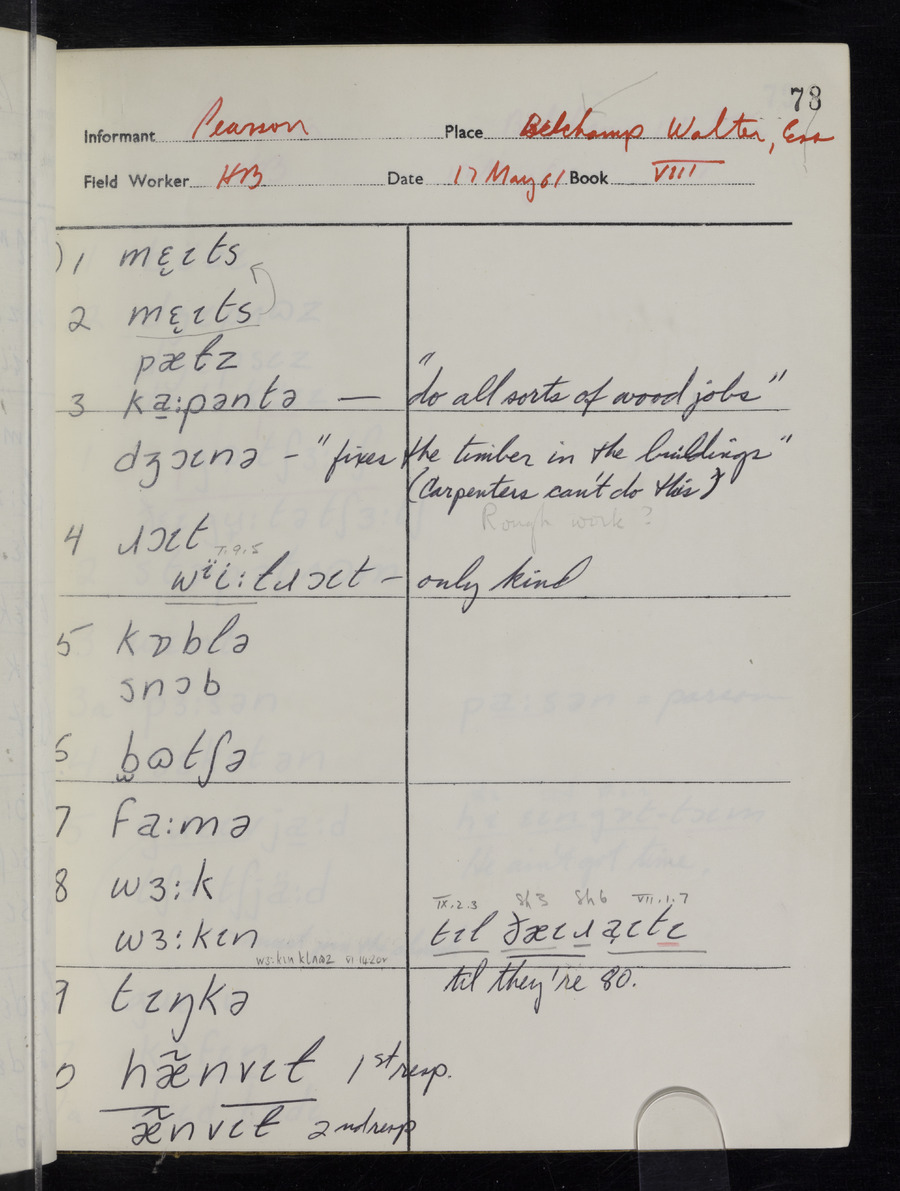 73
Informant Pearson Place Belchamp Walter, Ess
Field Worker HB Date 17 May 61 Book VIII
) 1 mɛ̞ɪts
2 mɛ̞ɪts
pætz
3 ka̱:pəntə — "do all sorts of wood jobs"
dʒɔɪnə – "fixes the timber in the buildings"
(Carpenters can't do this)
Rough work?
4 ɹɔɪt
V.9.5
wïi:tɹɔɪt – only kind
5 kɒblə
snɔb
6 b̫ɷtʃə
7 fa:mə
8 wɜ:k
IX.2.3 Sh3 Sh6 VII.1.7
wɜ:kɪn tɪl ðæɪ ɹ a̞ɪtɪ
wɜ:kɪn klʌɷz VI 14.20v
til they're 80.
9 tɪŋkə
0 hæ̃nvɪt 1st resp.
æ̃nvɪt 2nd resp